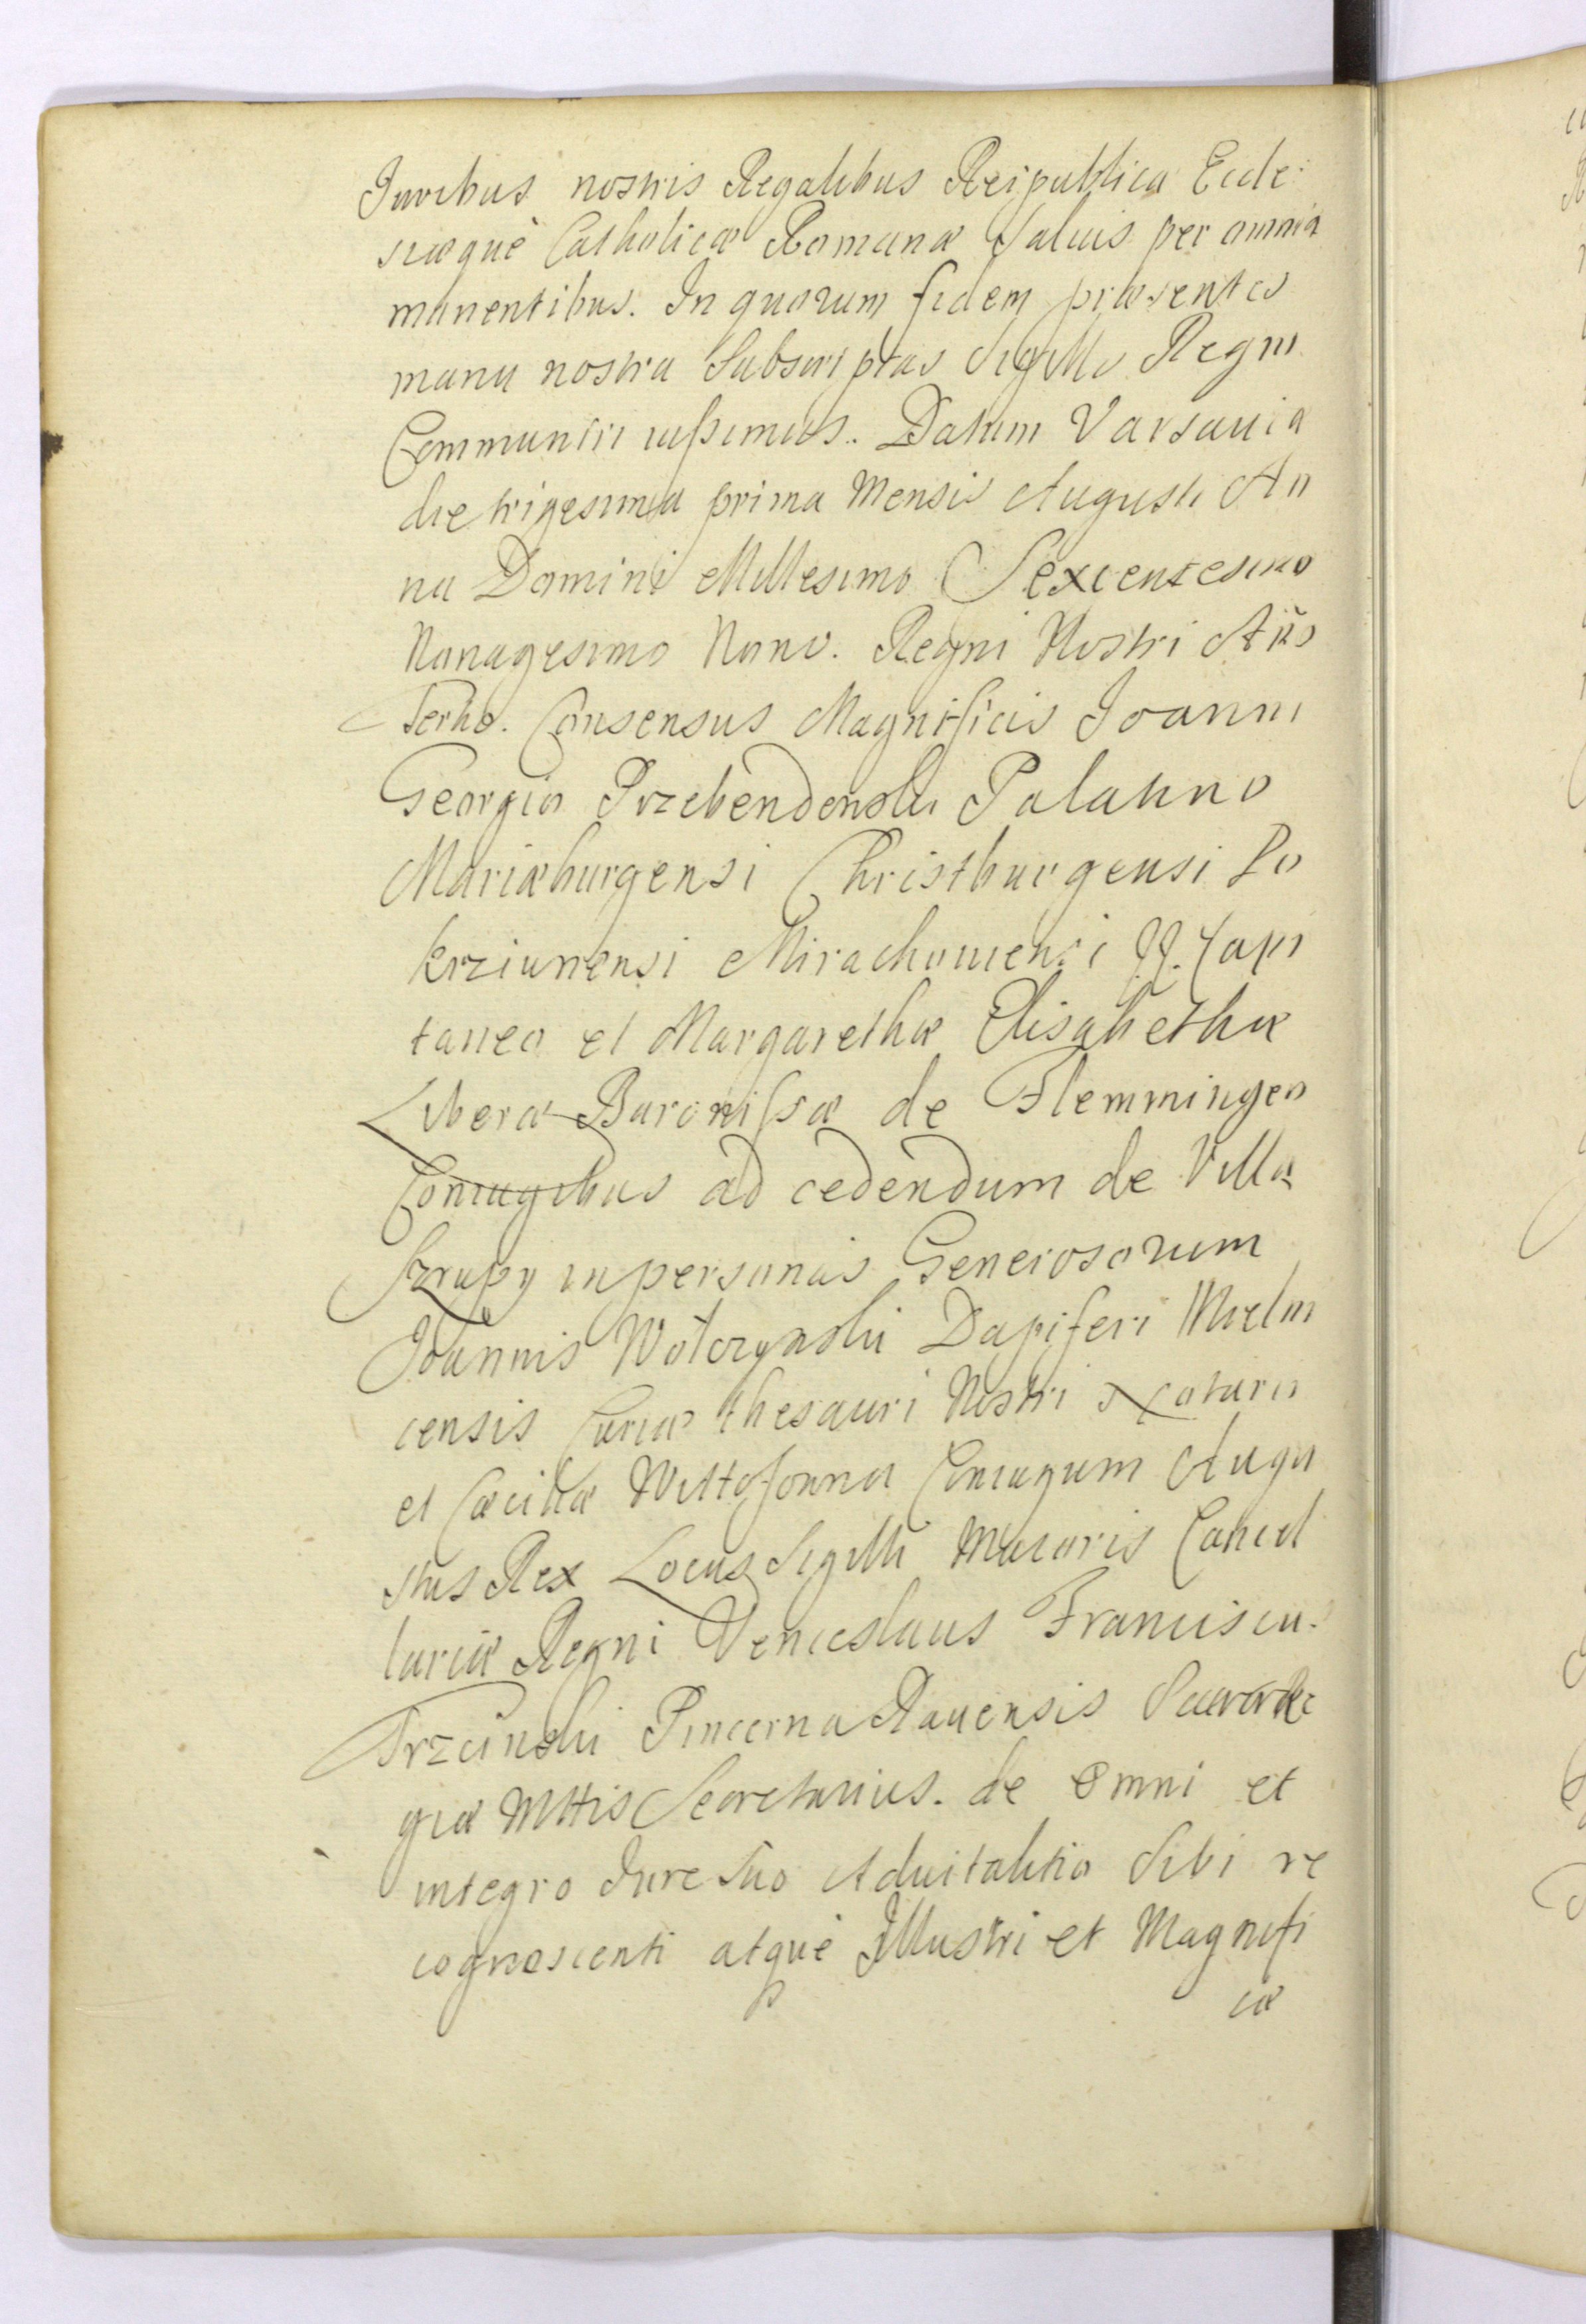 Juribus nostris Regalibus Reipublicæ Eccle:
siæque Catholicæ Romanæ Saluis per omnia
manentibus. In quorum fidem præsentes
manu nostra Subscriptas Sigillo Regni
Communiri iussimus. Datum Varsauiæ
die trigesima prima Mensis Augusti An
no Domini Millesimo Sexcentesimo
Nonagesimo Nono. Regni Nostri Ao
Tertio. Consensus Magnificis Joanni
Georgio Przebendowski Palatino
Mariæburgensi Christburgensi Po
krziunensi Mirachouiensi Capi
taneo et Margarethæ Elisabethæ
Liberæ Baronissæ de Flemmingen
Coniugibus ad cedendum de Villa
Szropy in personas Generosorum
Joannis Wolczynski Dapiferi Mielni
censis Curiæ thesauri Nostri Notarii
et Cæciliæ Wittosonna Coniugum Augu
stus Rex Locus Sigilli Maioris Cancel
lariæ Regni Venceslaus Franciscus
Trzcinski Pincerna Rauensis Sacræ Re
giæ Mttis Secretarius. de Omni et
integro Jure Suo Aduitalitio Sibi re
cognoscenti atque Illustri et Magnifi
cæ